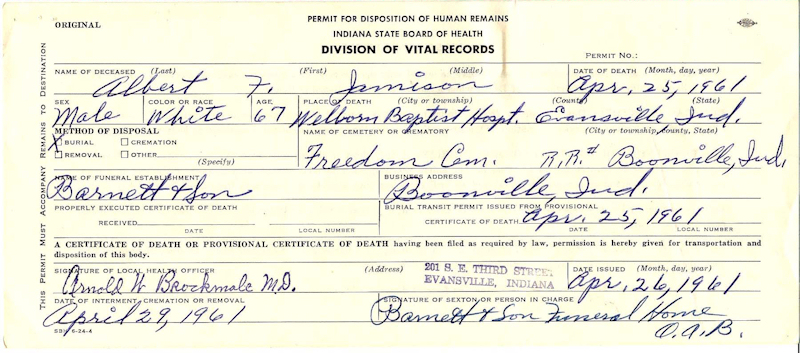 ORIGINAL
PERMIT FOR DISPOSITION OF HUMAN REMAINS
INDIANA STATE BOARD OF HEALTH
DIVISION OF VITAL RECORDS
PERMIT NO.:
THIS PERMIT MUST ACCOMPANY REMAINS TO DESTINATION
NAME OF DECEASED (Last) (First) (Middle) DATE OF DEATH (Month, day, year)
Albert F. Jamison Apr. 25, 1961
SEX COLOR OR RACE AGE PLACE OF DEATH (City or township) (County) (State)
Male White 67 Welborn Baptist Hospt. Evansville Ind.
METHOD OF DISPOSAL NAME OF CEMETERY OR CREMATORY (City or township, county, State)
X BURIAL CREMATION
REMOVAL OTHER (Specify)
Freedom Cem. R.R.# Boonville, Ind.
NAME OF FUNERAL ESTABLISHMENT BUSINESS ADDRESS
Barnett & Son Boonville, Ind.
PROPERLY EXECUTED CERTIFICATE OF DEATH BURIAL TRANSIT PERMIT ISSUED FROM PROVISIONAL
RECEIVED CERTIFICATE OF DEATH Apr. 25, 1961
DATE LOCAL NUMBER DATE LOCAL NUMBER
A CERTIFICATE OF DEATH OR PROVISIONAL CERTIFICATE OF DEATH having been filed as required by law, permission is hereby given for transportation and
disposition of this body.
SIGNATURE OF LOCAL HEALTH OFFICER (Address) 201 S. E. THIRD STREET DATE ISSUED (Month, day, year)
EVANSVILLE, INDIANA
Arnold W Brockmole M.D. Apr. 26, 1961
DATE OF INTERMENT, CREMATION OR REMOVAL SIGNATURE OF SEXTON OR PERSON IN CHARGE
April 29, 1961 Barnett & Son Funeral Home
O.A.B.
SBH 6-24-4